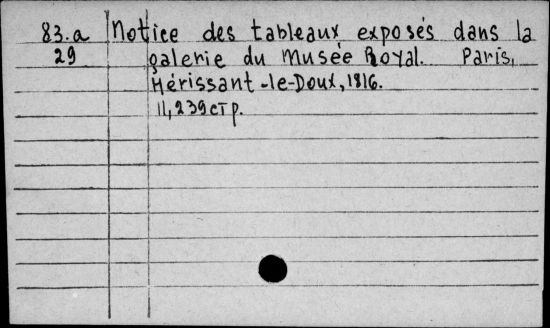 83.a Notice des tableaux exposés dans la
29 galerie du Musée Royal. Paris,
Hérissant-le-Doux, 1816.
II, 239 стр.